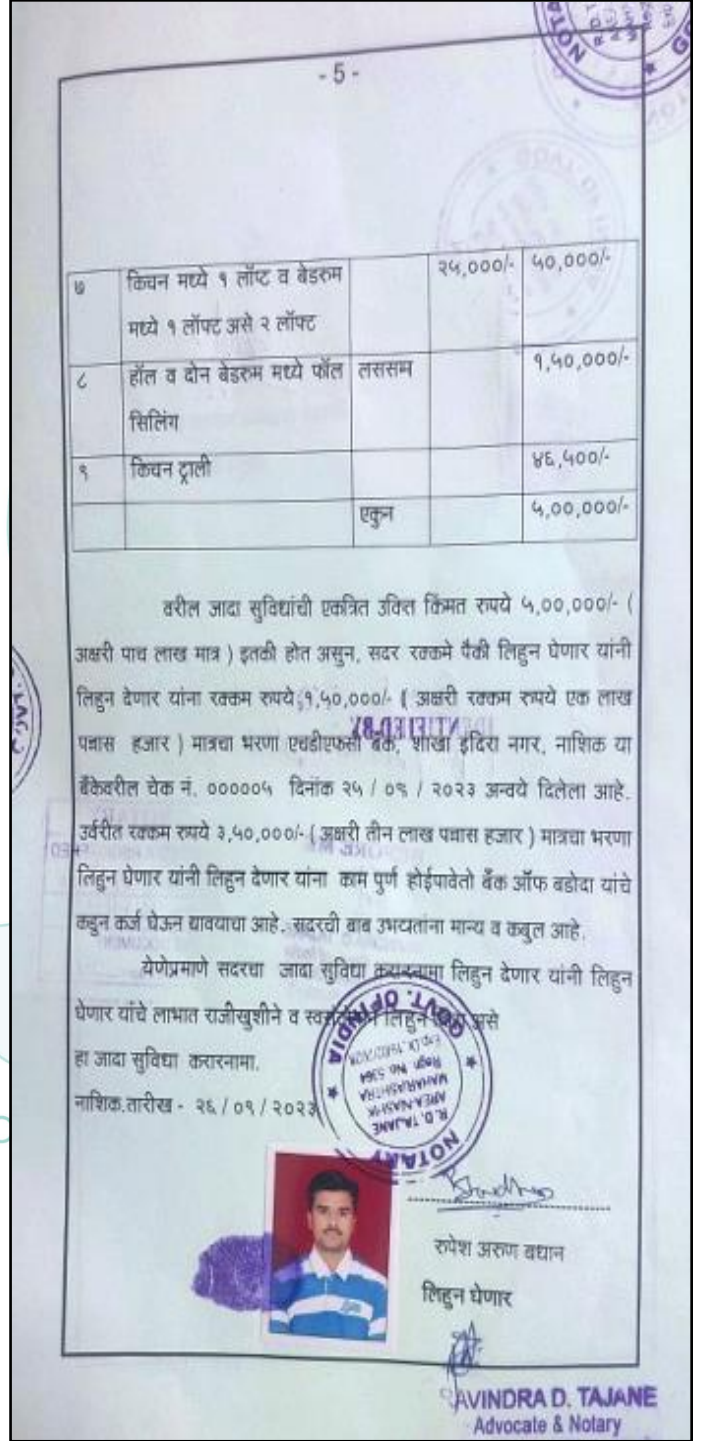 - 5 -
७ किचन मध्ये १ लॉप्ट व बेडरुम २५,०००/- ५०,०००/-
मध्ये १ लॉफ्ट असे २ लॉफ्ट
८ हॉल व दोन बेडरुम मध्ये फॉल लससम १,५०,०००/-
सिलिंग
९ किचन ट्राली ४६,५००/-
एकुन ५,००,०००/-
वरील जादा सुविधांची एकत्रित उक्ति किंमत रुपये ५,००,०००/- (
अक्षरी पाच लाख मात्र ) इतकी होत असुन, सदर रक्कमे पैकी लिहुन घेणार यांनी
लिहुन देणार यांना रक्कम रुपये १,५०,०००/- ( अक्षरी रक्कम रुपये एक लाख
पन्नास हजार ) मात्रचा भरणा एचडीएफसी बँक, शाखा इंदिरा नगर, नाशिक या
बँकेवरील चेक नं. ००००००५ दिनांक २५ / ०९ / २०२३ अन्वये दिलेला आहे.
उर्वरीत रक्कम रुपये ३,५०,०००/- ( अक्षरी तीन लाख पन्नास हजार ) मात्रचा भरणा
लिहुन घेणार यांनी लिहुन देणार यांना काम पुर्ण होईपावेतो बँक ऑफ बडोदा यांचे
कडुन कर्ज घेऊन द्यावयाचा आहे. सदरची बाब उभयतांना मान्य व कबुल आहे.
येणेप्रमाणे सदरचा जादा सुविधा करारनामा लिहुन देणार यांनी लिहुन
घेणार यांचे लाभात राजीखुशीने व लिहुन असे
हा जादा सुविधा करारनामा.
नाशिक.तारीख - २६ / ०९ / २०२३
NOTARY
GOVT. OF INDIA
R.D. TAJANE
AREA-NASHIK
MAHARASHTRA
Regn No. 5364
रुपेश अरुण बधान
लिहुन घेणार
AVINDRA D. TAJANE
Advocate & Notary